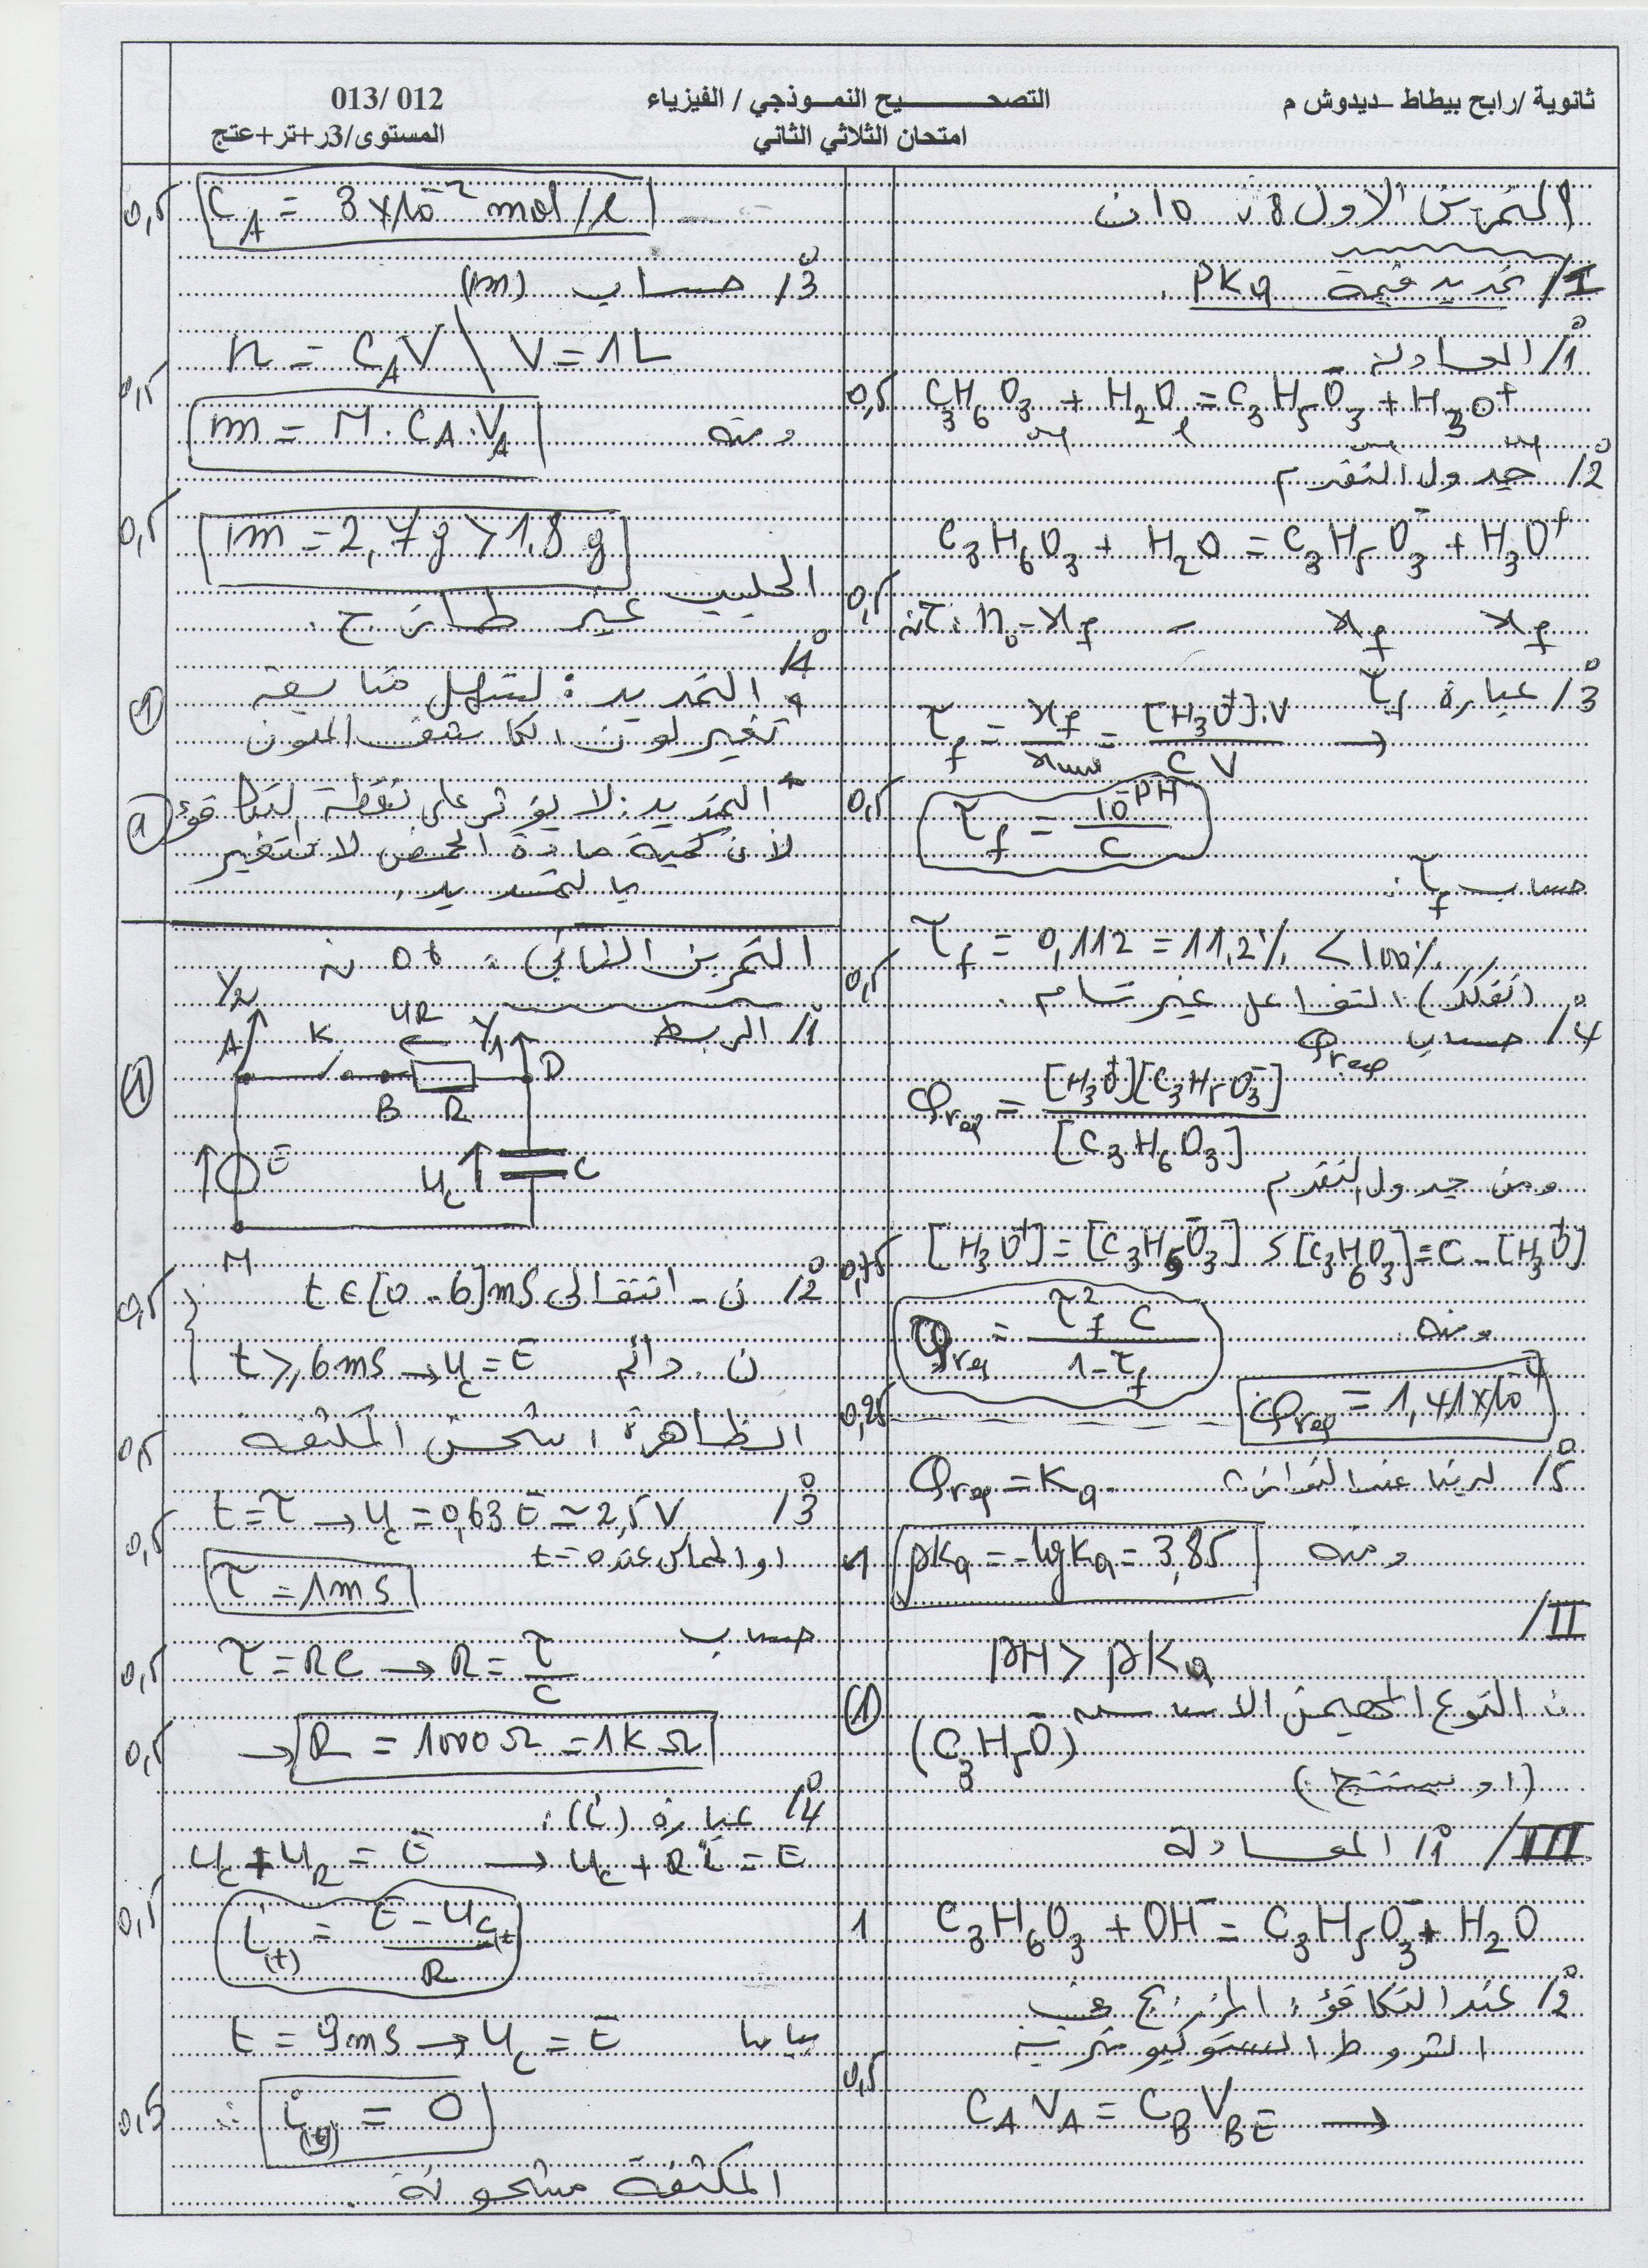 ثانوية /رابح بيطاط –ديدوش م
التصحـــيح النمـوذجي / الفيزياء
013/ 012
امتحان الثلاثي الثاني
المستوى/3ر+تر+عتج
التمرين الاول 8
I/ تحديد قيمة pKa
1°/ المعادلة
0,5 C3H6O3 + H2O = C3H5O3⁻ + H3O⁺
2°/ جدول التقدم
C3H6O3 + H2O = C3H5O3⁻ + H3O⁺
0,5 n0 - xf – xf xf
3°/ عبارة τf
τf = xf/xmax = [H3O⁺].V / C V
0,5 τf = 10^-PH / C
حساب τf :
τf = 0,112 = 11,2% < 100%
0,5 (تفكك) التفاعل غير تام .
4°/ حساب Qreq
Qreq = [H3O⁺][C3H5O3⁻] / [C3H6O3]
ومن جدول التقدم
0,75 [H3O⁺] = [C3H5O3⁻] , [C3H6O3] = C - [H3O⁺]
ومنه Qreq = τf² C / 1-τf
0,25 Qreq = 1,41×10⁻⁴
5°/ لدينا عند التوازن : Qreq = Ka
1 ومنه pKa = -lgKa = 3,85
II/
pH > pKa
(1) النوع المهيمن الاساسي
(C3H5O⁻)
(او يستنتج)
III/ 1°/ المعادلة
1 C3H6O3 + OH⁻ = C3H5O3⁻ + H2O
2°/ عند التكافؤ : المزيج في
الشروط الستوكيومترية
0,5 CA VA = CB VBE →
0,5 CA = 3×10⁻² mol/l
3°/ حساب (m)
n = CA V \ V = 1L
0,5 ومنه m = M . CA . VA
0,5 m = 2,7g > 1,8 g
الحليب غير طازج .
4°/
(1) * التمديد : لتسهل متابعة
تغير لون الكاشف الملون
(1) * التمديد : لا يؤثر على نقطة التكافؤ
لأن كمية مادة الحمض لا تتغير
بالتمديد .
التمرين الثاني : 06 ن
1°/ الربط
Y2 A K UR Y1 D
(1) B R
E Uc C
M
0,5 2°/ ن - انتقالي t∈[0 - 6]ms
ن . دائم t ≥ 6ms → Uc = E
0,5 الظاهرة : شحن المكثفة
3°/ t = τ → Uc = 0,63 E ≃ 2,5 V
0,5 او المماس عند t = 0
τ = 1ms
حساب
0,5 τ = RC → R = τ/C
0,5 → R = 1000Ω = 1kΩ
4°/ عبارة (i) :
Uc + UR = E → Uc + R i = E
0,5 i(t) = E - Uc(t) / R
t = 9ms → Uc = E
0,5 ∴ i(9) = 0
المكثفة مشحونة .